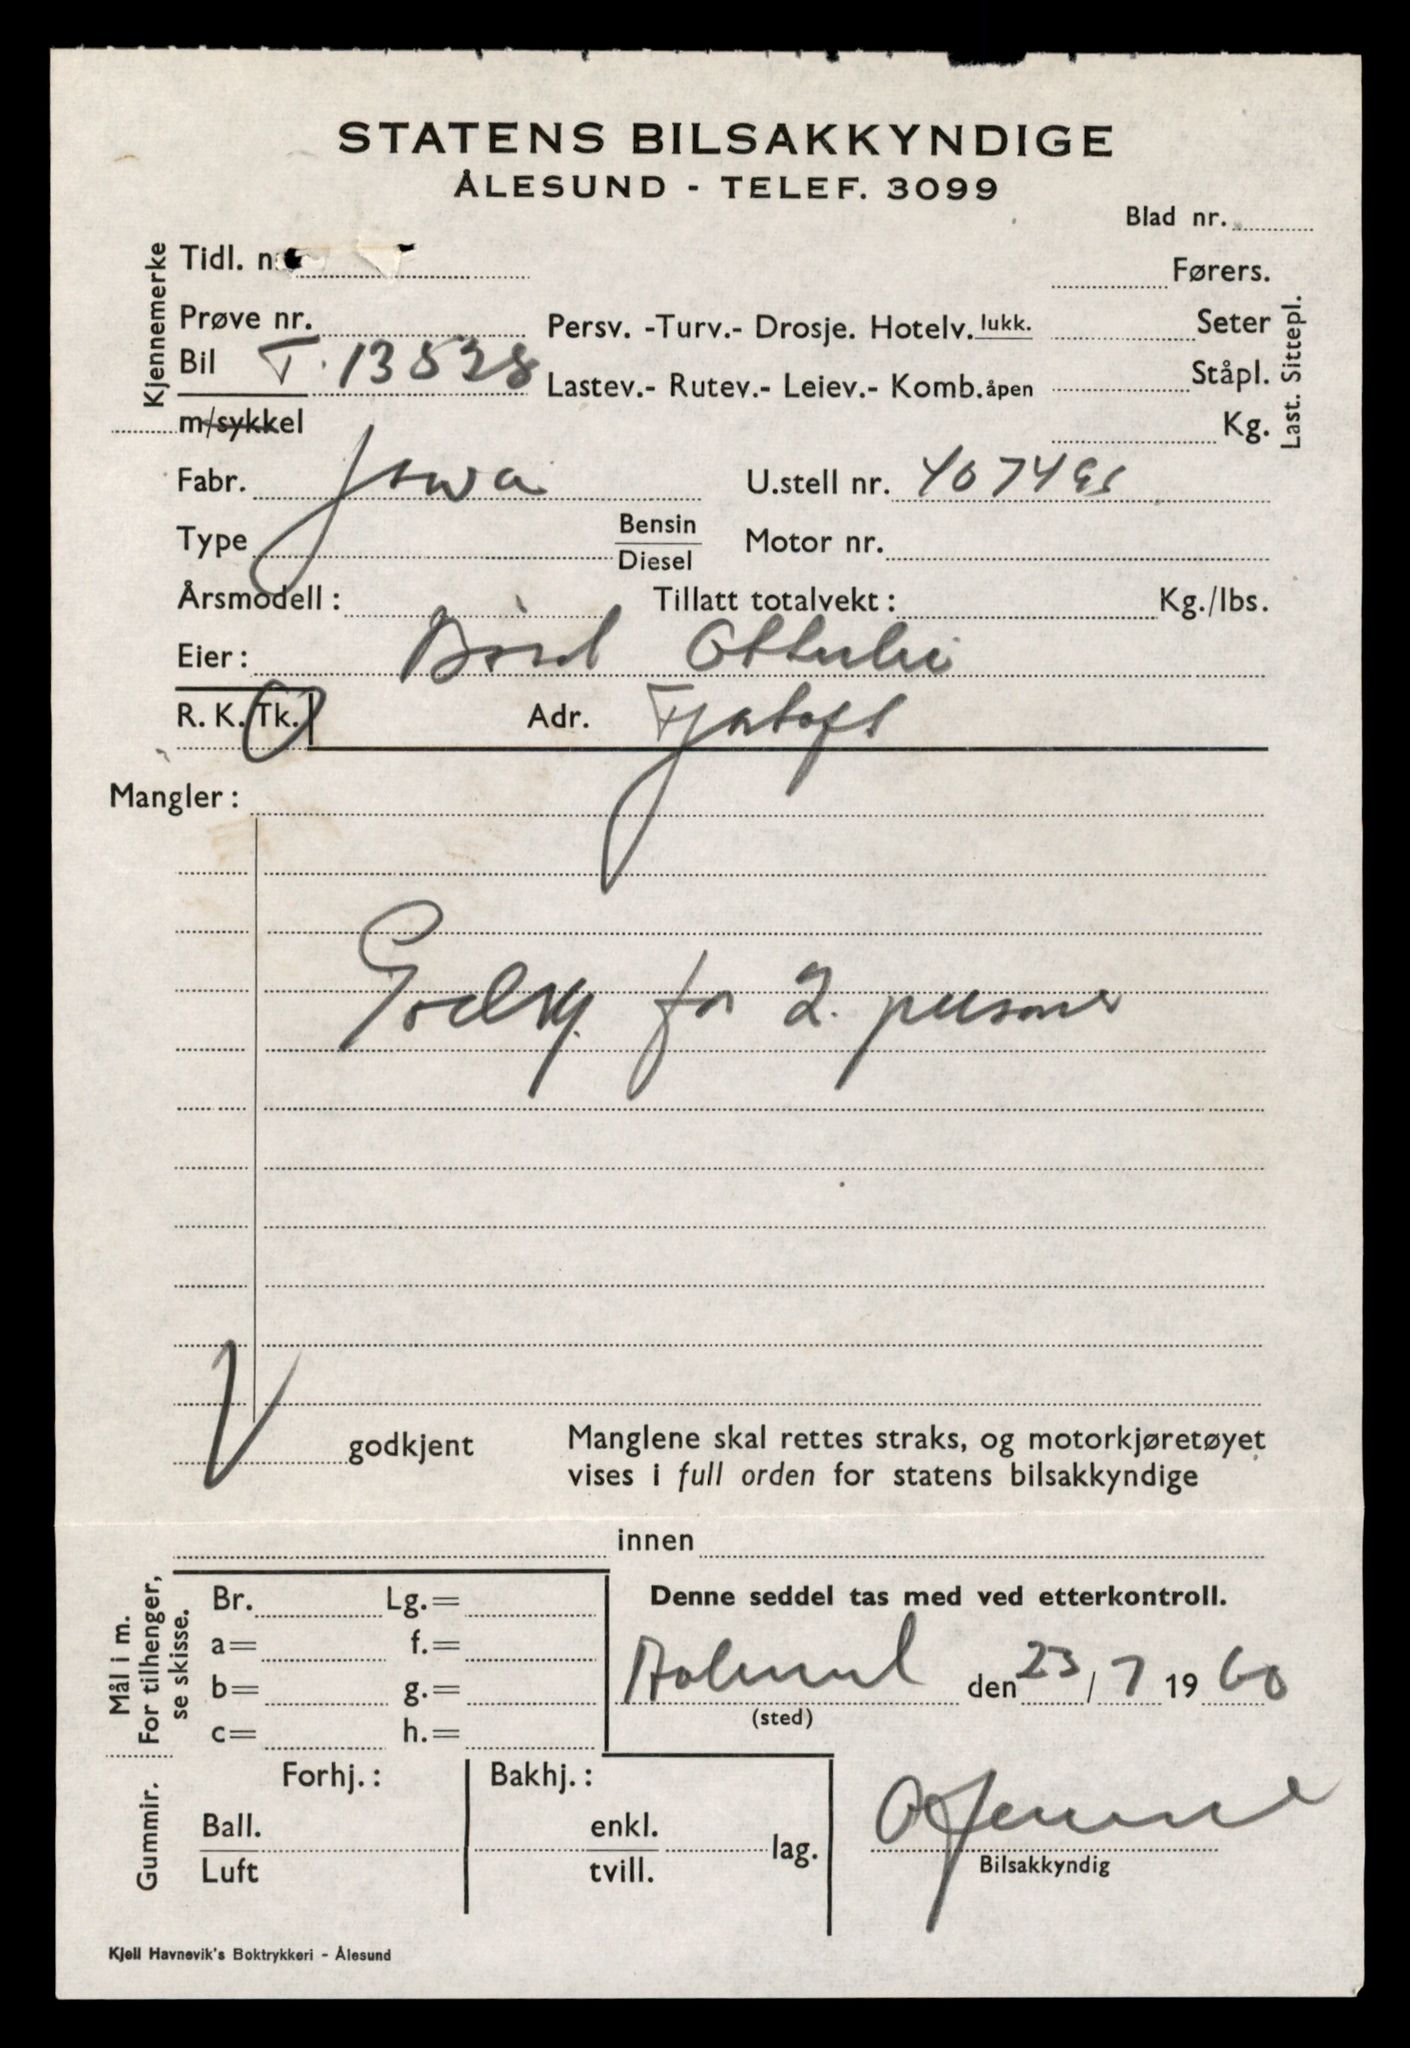 STATENS BILSAKKYNDIGE
ÅLESUND - TELEF. 3099
Blad nr.
Kjennemerke
Tidl. n
Førers.
Prøve nr.
Persv. -Turv.- Drosje. Hotelv. lukk.
Seter
Bil T. 13528
Lastev.- Rutev.- Leiev.- Komb. åpen
Ståpl.
Last. Sittepl.
m/sykkel
Kg.
Fabr. Jawa
U.stell nr.
Type
Bensin
Diesel
Motor nr.
Årsmodell :
Tillatt totalvekt :
Kg./lbs.
Eier : Bård Otterlei
R. K. Tk.
Adr. Fjørtoft
Mangler :
Godkj. for 2. personer
V godkjent
Manglene skal rettes straks, og motorkjøretøyet
vises i full orden for statens bilsakkyndige
innen
Mål i m.
For tilhenger,
se skisse.
Br. Lg.=
a= f.=
b= g.=
c= h.=
Denne seddel tas med ved etterkontroll.
den 23/7 1960
(sted)
Gummir.
Forhj. :
Bakhj. :
Ball.
Luft
enkl.
tvill.
lag.
Bilsakkyndig
Kjell Havnevik's Boktrykkeri - Ålesund